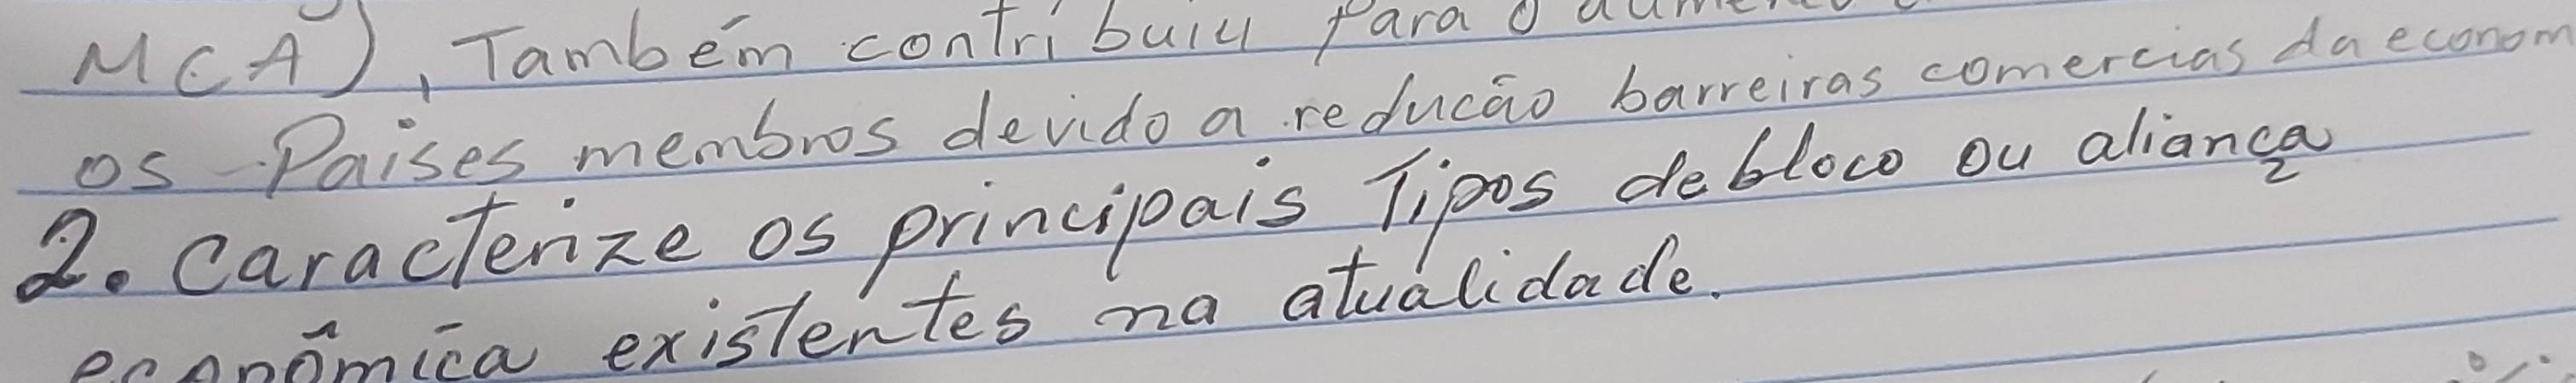 MCA), Também contribuiu para o
os Paises membros devido a reducão barreiras comercias da econom
2. Caracterize os principais Tipos de bloco ou aliança
econômica existentes na atualidade.